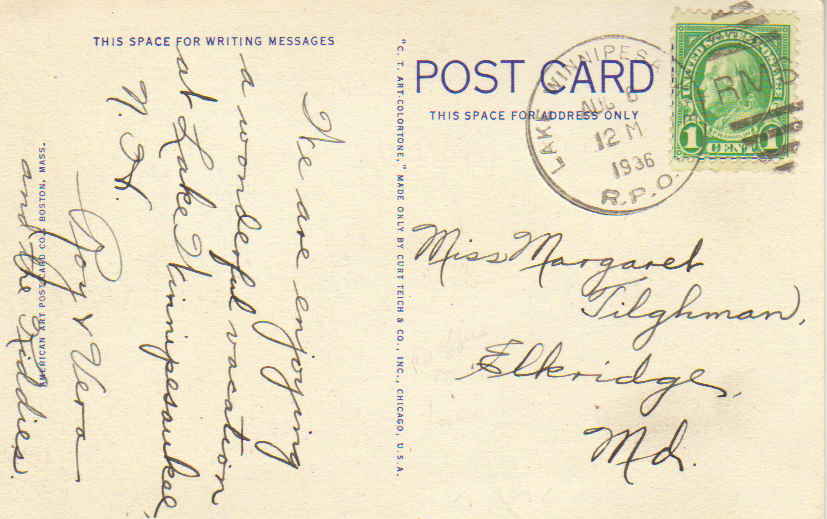 THIS SPACE FOR WRITING MESSAGES
We are enjoying
a wonderful vacation
at Lake Winnipesaukee,
N. H.
Roy & Vera
and the Kiddies.
AMERICAN ART POST CARD CO., BOSTON, MASS.
"C. T. ART-COLORTONE," MADE ONLY BY CURT TEICH & CO., INC., CHICAGO, U.S.A.
POST CARD
THIS SPACE FOR ADDRESS ONLY
LAKE WINNIPESA
AUG 8
12 M
1936
R.P.O.
RMS
1 CENT 1
Miss Margaret
Tilghman,
Elkridge,
Md.